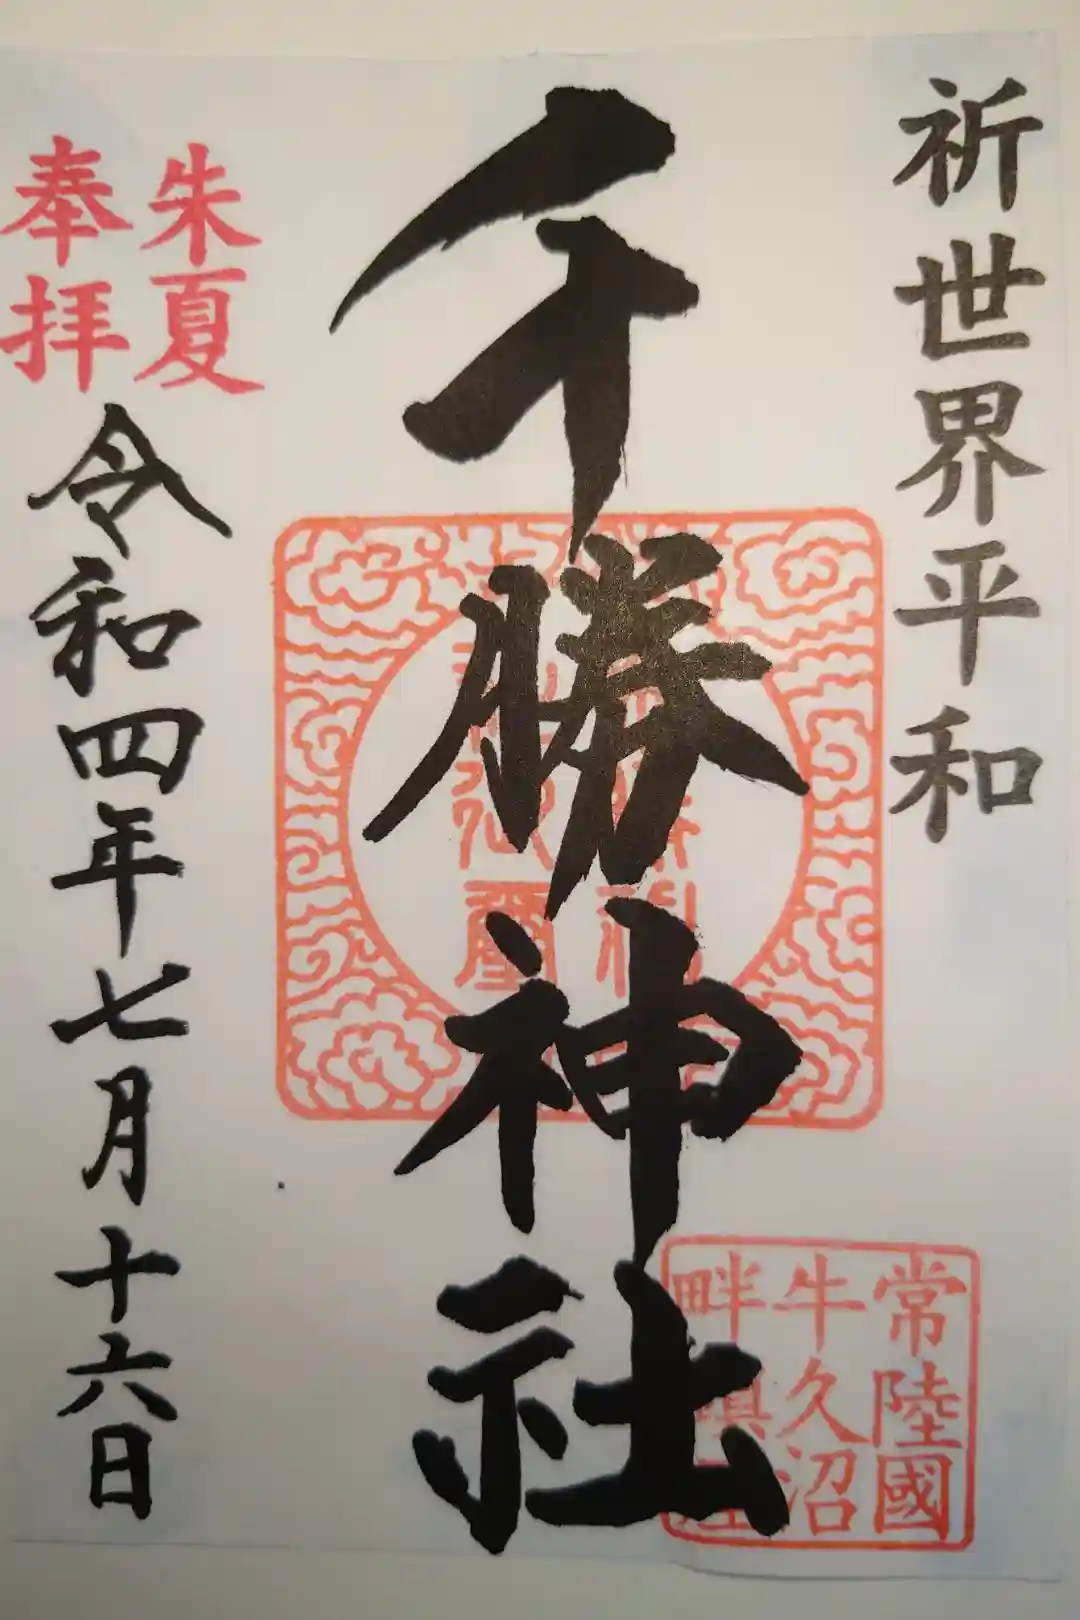 祈世界平和
千勝神社
常陸國
牛久沼
畔
朱夏
奉拝
令和四年七月十六日